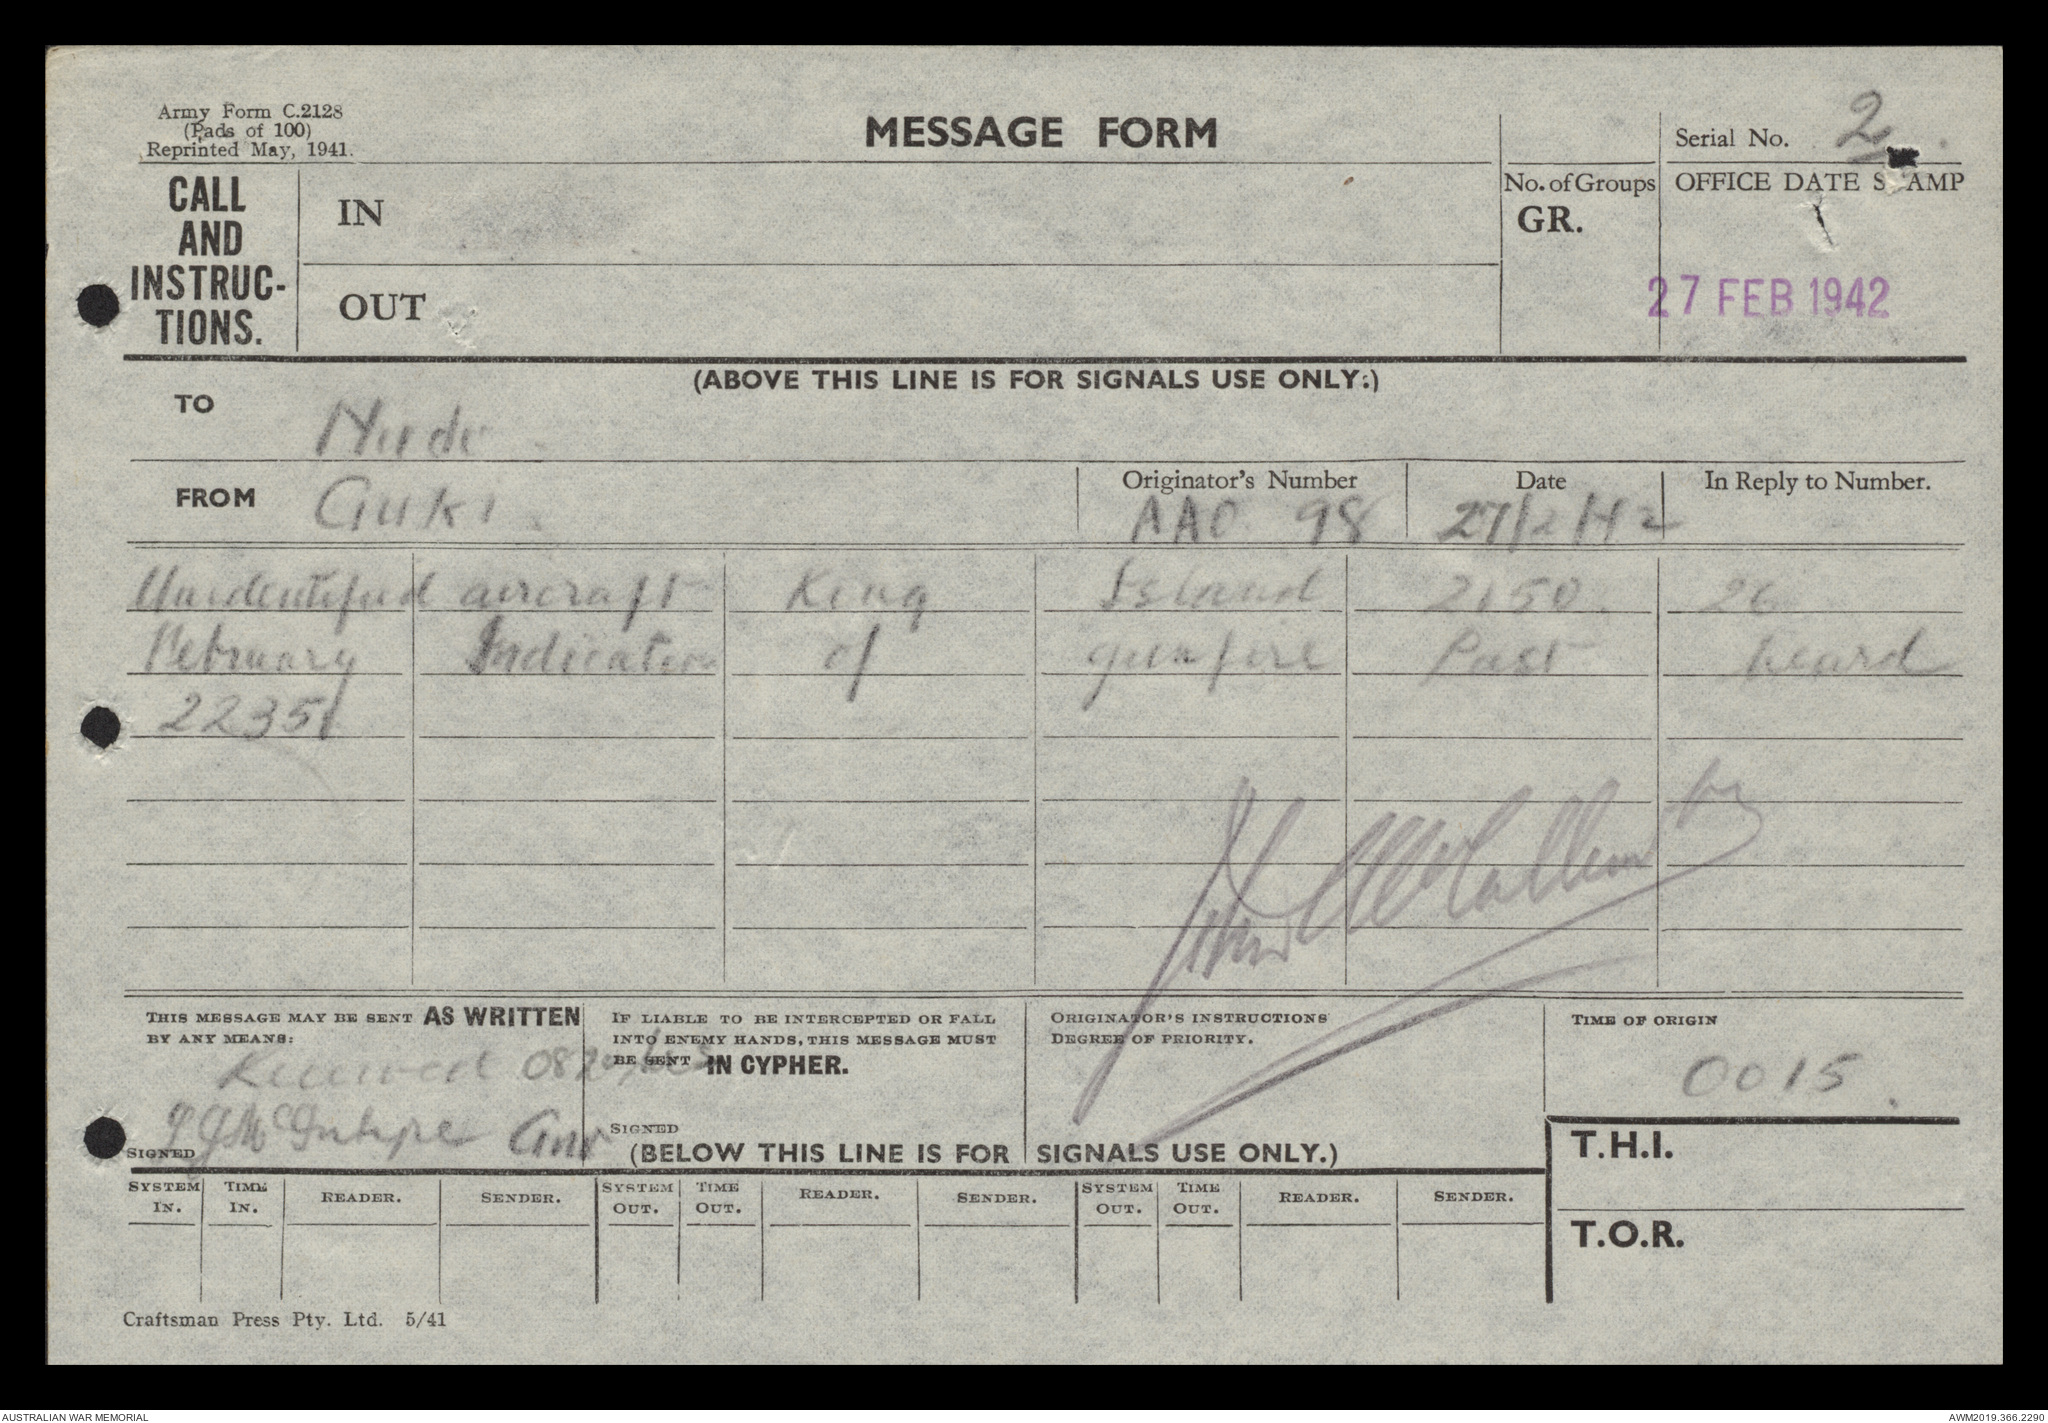 Army Form C.2128
(Pads of 100)
Reprinted May, 1941.
MESSAGE FORM
Serial No. 2
CALL
AND
INSTRUC-
TIONS.
IN
OUT
No. of Groups
GR.
OFFICE DATE STAMP
27 FEB 1942
(ABOVE THIS LINE IS FOR SIGNALS USE ONLY.)
TO
FROM Guki
Originator's Number
AAO 98
Date
27/2/42
In Reply to Number.
Unidentified aircraft King Island 2150 26
February Indication of gunfire Past heard
2235/
THIS MESSAGE MAY BE SENT AS WRITTEN
BY ANY MEANS:
Received
SIGNED
IF LIABLE TO BE INTERCEPTED OR FALL
INTO ENEMY HANDS, THIS MESSAGE MUST
BE SENT IN CYPHER.
SIGNED
ORIGINATOR'S INSTRUCTIONS
DEGREE OF PRIORITY.
TIME OF ORIGIN
0015.
(BELOW THIS LINE IS FOR SIGNALS USE ONLY.)
T.H.I.
T.O.R.
SYSTEM IN. TIME IN. READER. SENDER. SYSTEM OUT. TIME OUT. READER. SENDER. SYSTEM OUT. TIME OUT. READER. SENDER.
Craftsman Press Pty. Ltd. 5/41
AUSTRALIAN WAR MEMORIAL
AWM2019.366.2290